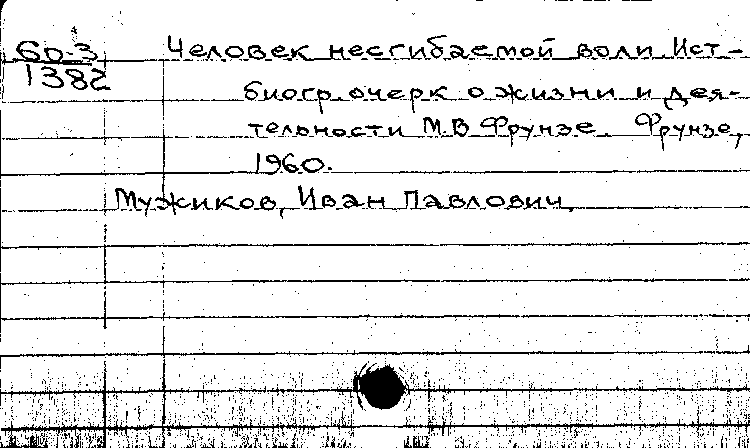 60-3
1382
Человек несгибаемой воли. Ист-
биогр. очерк о жизни и дея-
тельности М.В. Фрунзе. Фрунзе,
1960.
Мужиков, Иван Павлович.